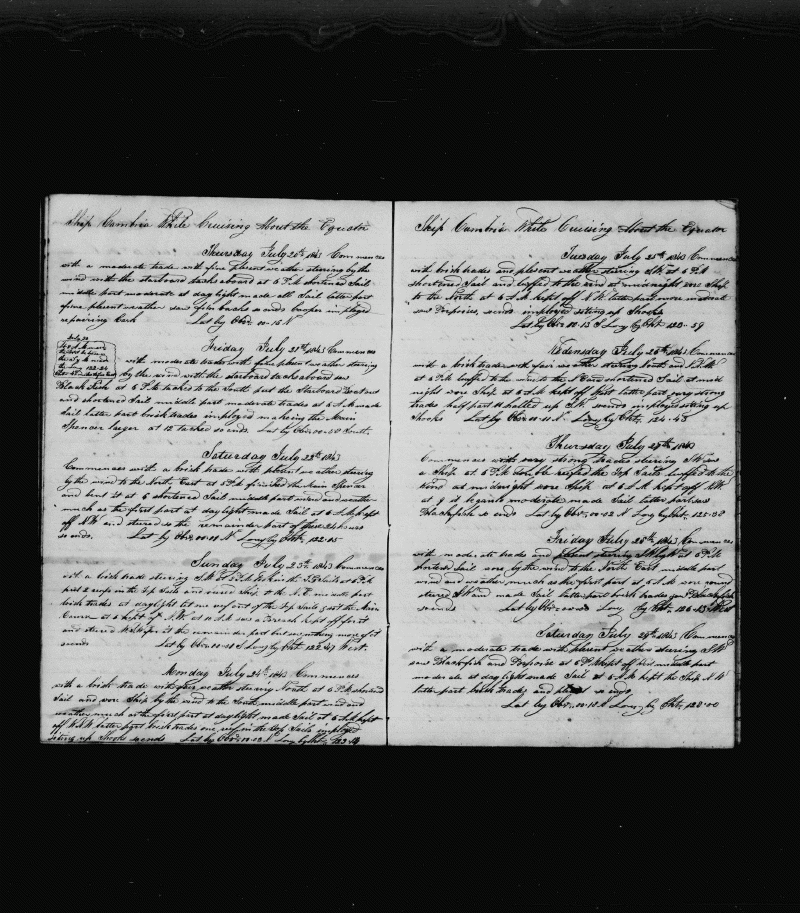 Ship Cambria While Cruising About the Equator
Thursday July 20th 1843 Commences
with a moderate trade with fine plesent weather steering by the
wind with the starboard tacks aboard at 6 P.M shortened Sail
middle part moderate at day light made all Sail latter part
fine plesent weather saw fin backs so ends Cooper imployed
repairing Cask Lat by Obs 00-16 N
Friday July 21st 1843 Commences
with moderate trade with fine plesent weather steering
by the wind with the starboard tacks aboard saw
Black Fish at 6 P.M tacked to the South put the Starboard Boat out
and shortened Sail middle part moderate trades at 6 A.M made
Sail latter part brisk trades imployed making the Main
Spencer larger at 12 tacked so ends Lat by Obs 00-20 South
Saturday July 22nd 1843
Commences with a brisk trade with plesent weather steering
by the wind to the North East at 5 P.M finished the Main Spencer
and bent it at 6 shortened Sail middle part wind and weather
much as the first part at daylight made Sail at 6 A.M kept
off NW and steered so the remainder part of these 24 hours
so ends. Lat by Obs 00-10 N Long by Cht. 122-15
Sunday July 23rd 1843 Commences
with a brisk trade steering
put 2 reefs in the Top Sails and wored Ship to the N.E middle part
brisk trades at daylight let one reef out of the Top Sails set the Main
Course at kept off N.W. at 10 A.M saw a Breach kept off for it
and steered the remainder part but saw nothing more of it
so ends Lat by Obs 00-10 S Long by Cht 122-47 West.
Monday July 24th 1843 Commences
with a brisk trade with fair weather stearing South at 6 P.M shortened
Sail and wore Ship by the wind to the South middle part wind and
weather much as the first part at daylight made Sail at 6 A.M kept
off W.N.W. latter part brisk trades one reef in the Top Sails imployed
seting up Shooks so ends Lat by Obs 00-12 N Long by Cht. 123-14
Ship Cambria While Cruising About the Equator
Tuesday July 25th 1843 Commences
with brisk trades and plesent weather stearing S.W. at 6 P.M
shortened Sail and luffed to the wind at midnight wore Ship
to the North at 6 A.M kept off N.W. latter part more moderate
saw Porpoises so ends imployed seting up Shooks
Lat by Obs 00-13 S Long by Cht 123-59
Wednesday July 26th 1843 Commences
with a brisk trade with fair weather stearing South and S.S.W.
at 6 P.M luffed to the wind to the shortened Sail at mid
night wore Ship at 6 A.M kept off West latter part very strong
trades half past 11 hailed up S.W. so ends imployed seting up
Shooks Lat by Obs 00-11 N Long by Cht. 124-43
Thursday July 27th 1843
Commences with very strong trades stearing S.W. saw
a Ship at 5 P.M double reefed the Top Sails luffed to the
wind at midnight wore Ship at 6 A.M kept off N.W.
at 9 it begain moderate made Sail latter part saw
Blackfish so ends Lat by Obs. 00-32 N Long by Cht. 125-38
Friday July 28th 1843 Commences
with moderate trades and plesent stearing S.W. at 6 P.M
shortend Sail wore by the wind to the North East middle part
wind and weather much as the first part at 6 A.M wore round
steered SW and made Sail latter part brisk trades saw Blackfish
so ends Lat by Obs 00-00 Long by Cht. 126-43 West
Saturday July 29th 1843 Commences
with a moderate trade with plesent weather stearing S.W.
saw Blackfish and Porpoise at 6 P.M kept off West middle part
moderate at daylight made Sail at 6 A.M kept the Ship N.W.
latter part brisk trades and plesent so ends
Lat by Obs. 00-10 N Long by Cht. 128-00